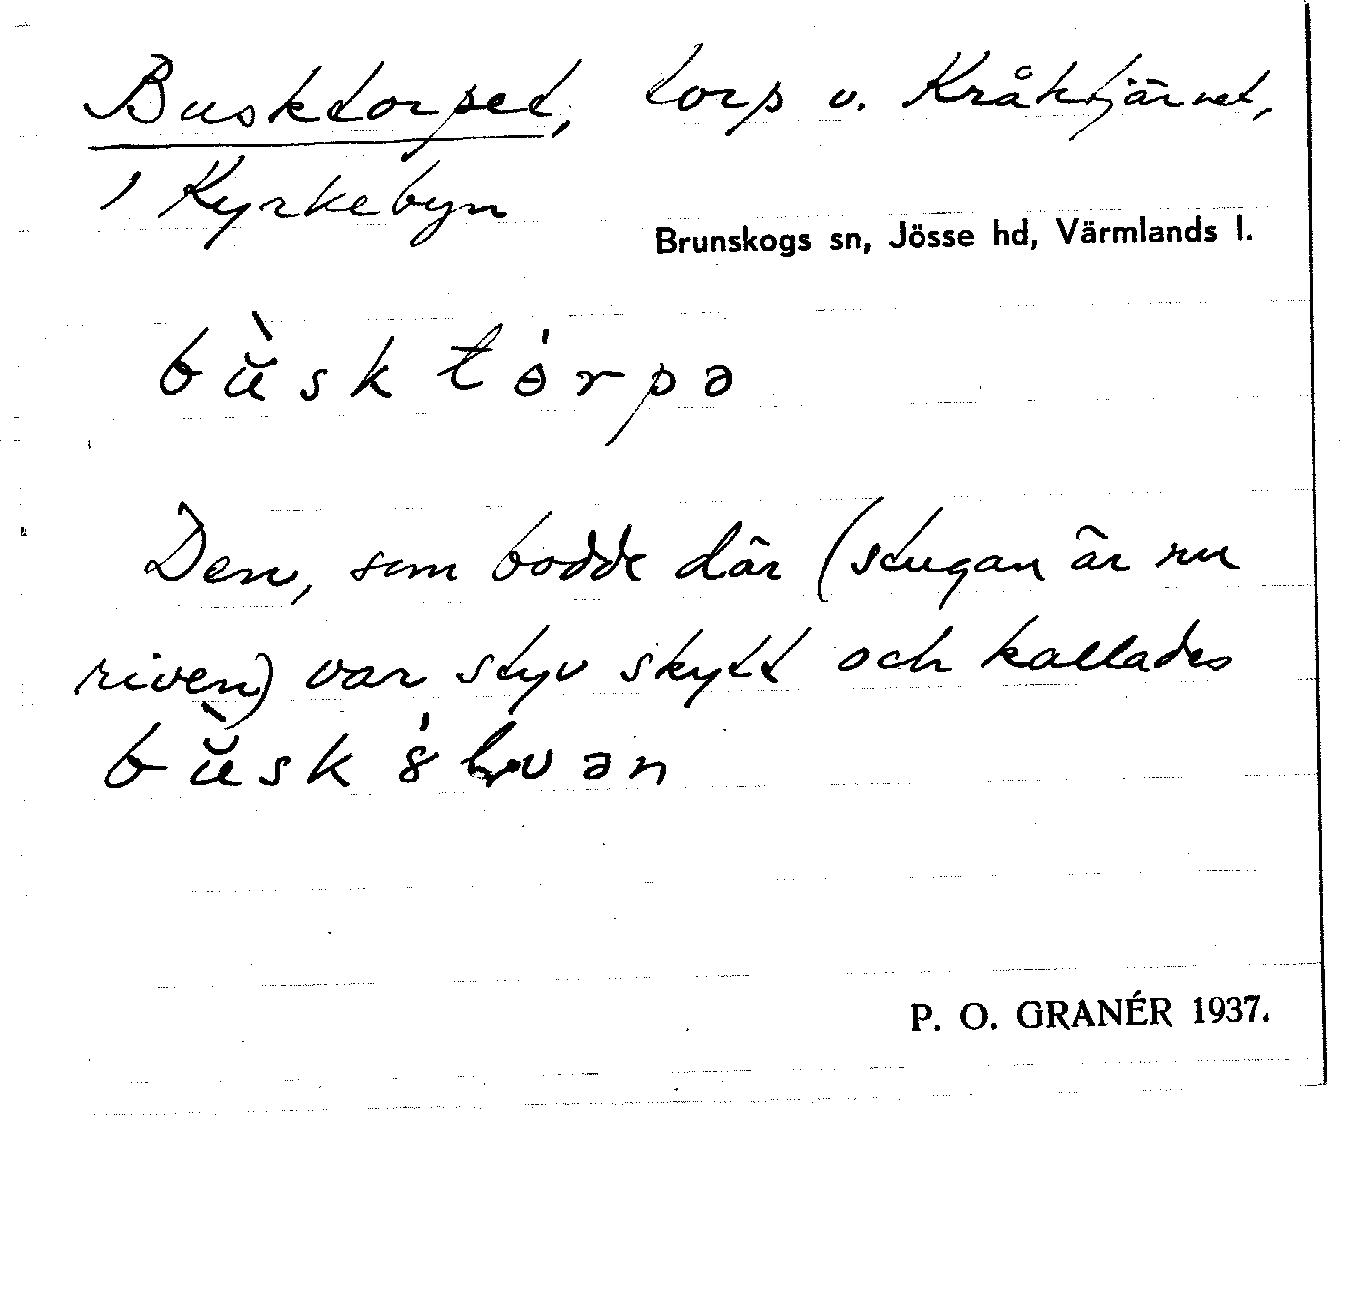 Busktorpet, torp v. Kråktjärnet,
i Kyrkebyn
Brunskogs sn, Jösse hd, Värmlands l.
bŭ̀sk tɵ́rpə
Den, som bodde där (stugan är nu
riven) var styv skytt och kallades
bŭ̀sk
P. O. GRANÉR 1937.